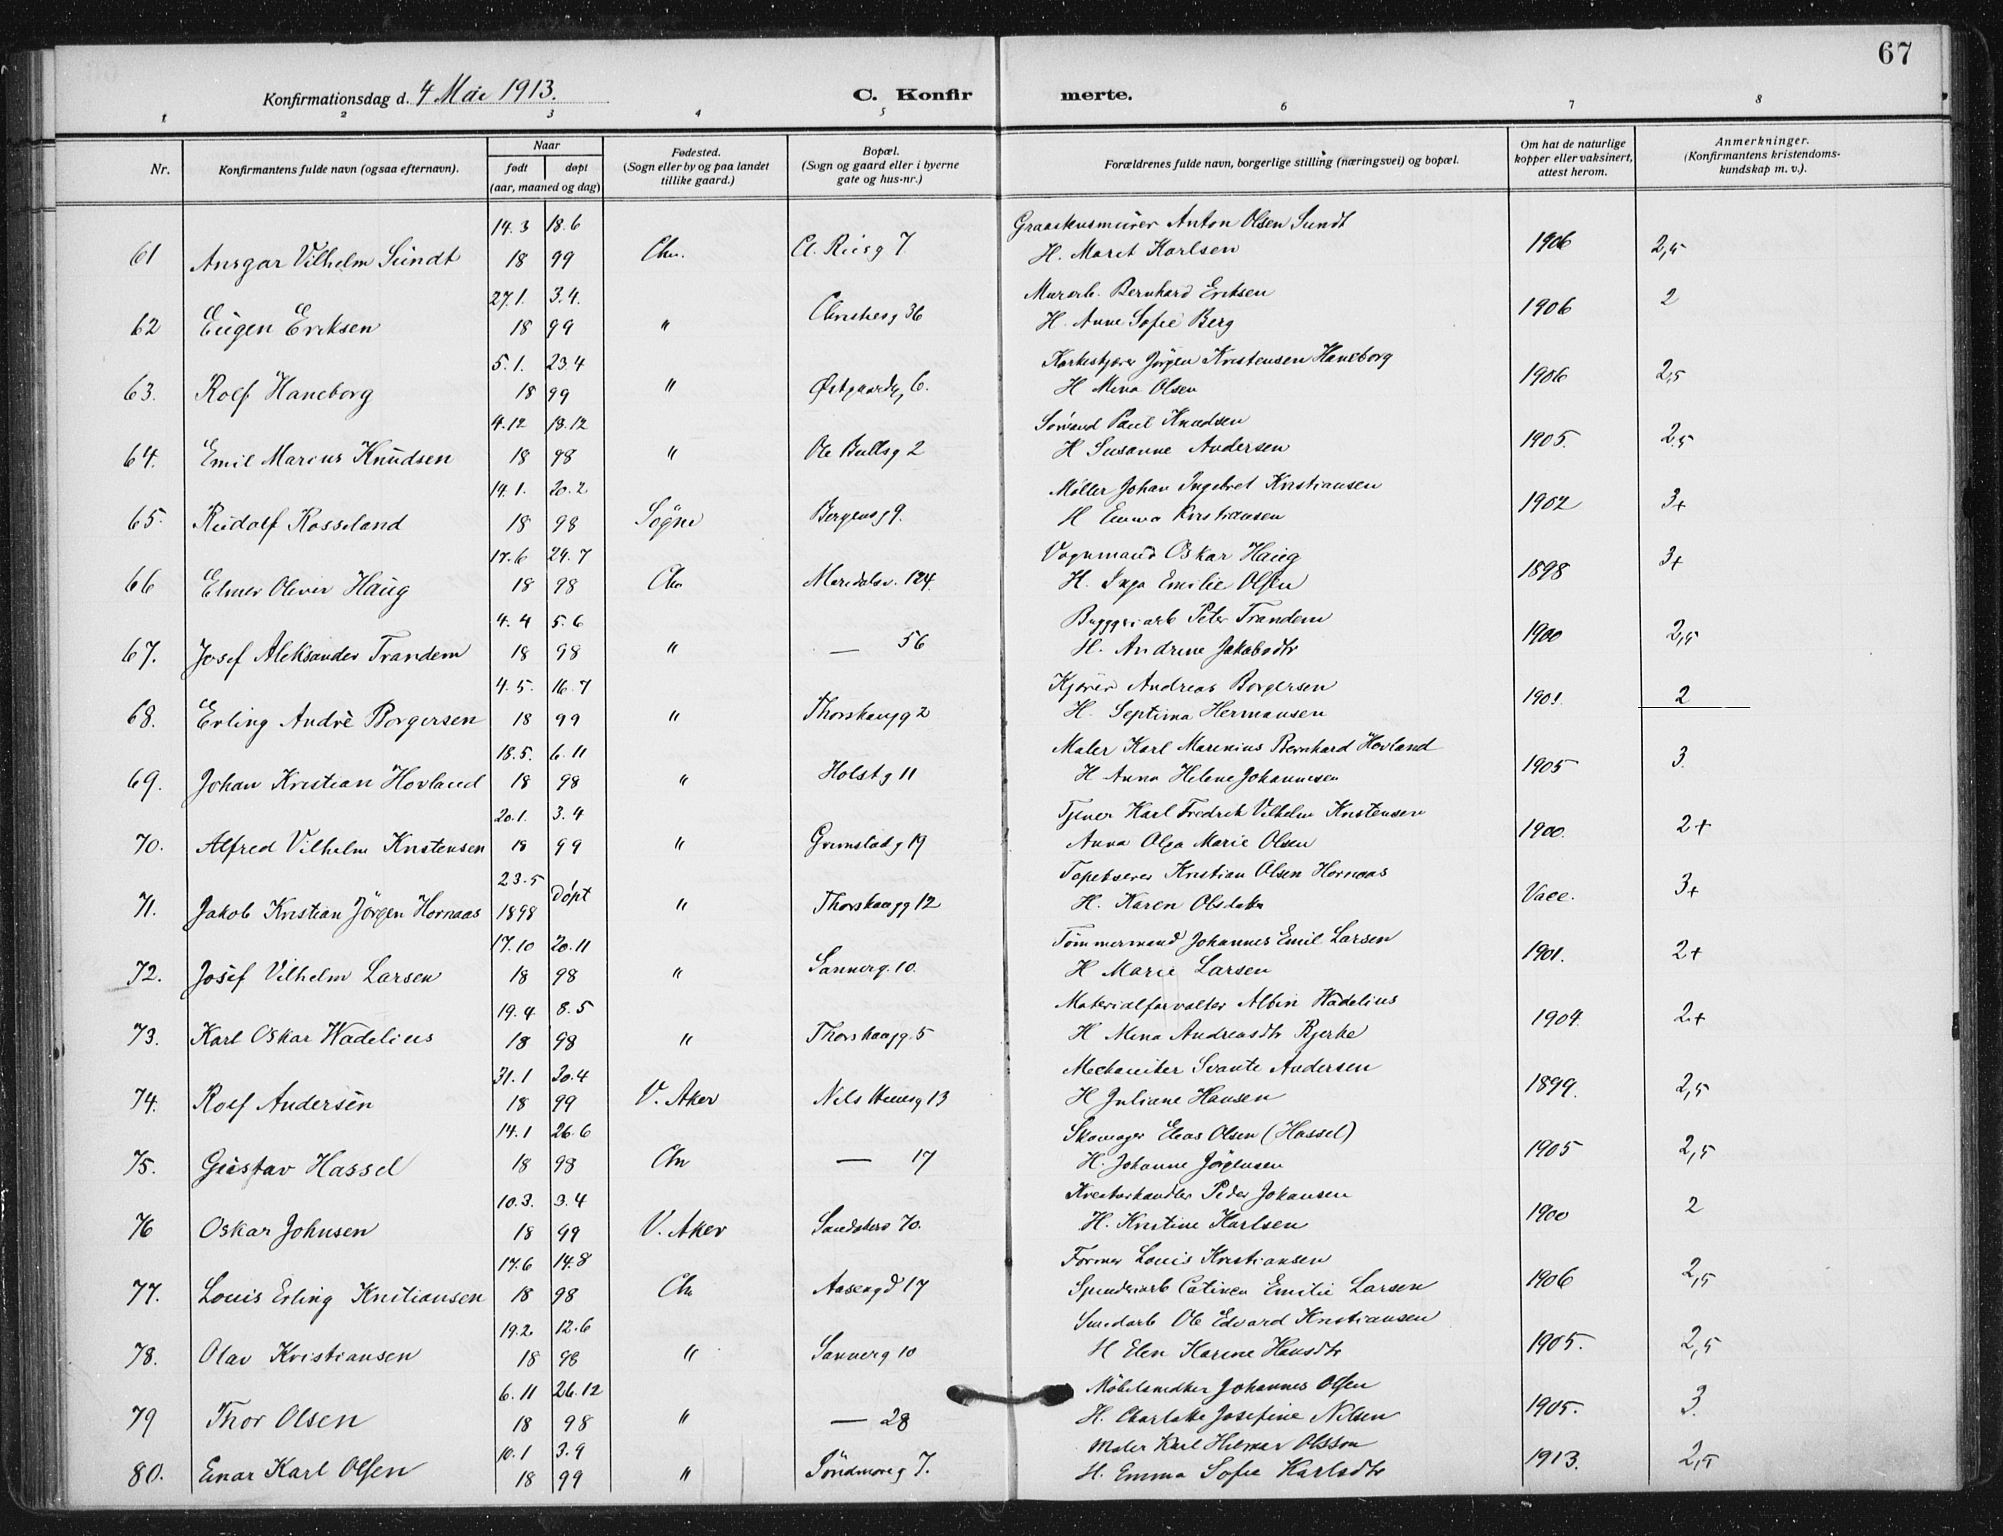 67
Konfirmationsdag d. 4 Mai 1913. C. Konfir merte.
1 2 3 4 5 6 7 8
Nr. Konfirmantens fulde navn (ogsaa efternavn). Naar født døpt (aar, maaned og dag) Fødested. (Sogn eller by og paa landet tillike gaard.) Bopæl. (Sogn og gaard eller i byerne gate og hus-nr.) Forældrenes fulde navn, borgerlige stilling (næringsvei) og bopæl. Om hat de naturlige kopper eller vaksinert, attest herom. Anmerkninger. (Konfirmantens kristendoms-kundskap m. v.).
14.3 18.6 Anton Olsen Sundt
61 Ansgar Vilhelm Sundt 18 99 Chn. Cl. Riisg 7 H. Marit Karlsen 1906 2,5
27.1. 3.4. Murarb. Bernhard Eriksen
62 Eugen Eriksen 18 99 " Christiesg 36 H. Anne Sofie Berg 1906 2
5.1. 23.4 Jörgen Kristensen Haneborg
63. Rolf Haneborg 18 99 " Østgaardsg 6. H Mina Olsen 1906 2,5
4.12 18.12 Sömand Paul Knudsen
64. Emil Marius Knudsen 18 98 " Ole Bullsg 2 H Susanne Andersen 1905. 2,5
14.1. 20.2 Möller Johan Ingebret Kristiansen
65. Rudolf Rosseland 18 98 Sögne Bergensg 9. H Emma Kristiansen 1902 3+
17.6 24.7 Vognmand Oskar Haug
66 Elmer Oliver Haug 18 98 Chn Maridalsv. 124. H. Inga Emilie Olsen 1898 3+
4.4 5.6 Bryggeriarb Peter Trandem
67. Josef Aleksander Trandem 18 98 " — 56 H. Andrine Jakobsdtr 1900 2,5
4.5. 16.7 Kjörer Andreas Borgersen
68. Erling Andrè Borgersen 18 99 " Thorshaugg 2 H. Septima Hermansen 1901. 2
18.5. 6.11 Maler Karl Marinius Bernhard Hovland
69. Johan Kristian Hovland 18 98 " Holstg 11 H Anna Helene Johannesen 1905 3.
20.1. 3.4 Tjener Karl Fredrik Vilhelm Kristensen
70. Alfred Vilhelm Kristensen 18 99 " Grimstadg 19 Anna Olga Marie Olsen 1900. 2+
23.5 døpt Tapetserer Kristian Olsen Hornaas
71. Jakob Kristian Jörgen Hornaas 1898 " Thorshaugg 12 H. Karen Olsdatter Vacc. 3+
17.10 20.11 Tömmermand Johannes Emil Larsen
72. Josef Vilhelm Larsen 18 98 " Sannerg. 10. H Marie Larsen 1901. 2+
19.4 8.5 Materialforvalter Albin Wadelius
73. Karl Oskar Wadelius 18 98 " Thorshaugg. 5 H Mina Andreasdtr Bjerke 1904. 2+
31.1 30.4 Mechaniker Svante Andersen
74. Rolf Andersen 18 99 V. Aker Nils Huusg 13 H Juliane Hansen 1899. 2,5
14.1 26.6 Skomager Elias Olsen (Hassel)
75. Gustav Hassel 18 98 Chn — 17 H. Johanne Jörgensen 1905 2,5
10.3. 3.4 Kreaturhandler Peder Johansen
76 Oskar Johnsen 18 99 V. Aker Sandakerv 70. H. Kristine Karlsen 1900 2
17.6 14.8 Former Louis Kristiansen
77. Louis Erling Kristiansen 18 98 Chn Aasengd 17 Spinderiarb Catinca Emilie Larsen 1906 2,5
19.2 12.6 Ole Edvard Kristiansen
78. Olav Kristiansen 18 98 " Sannerg 10 H Elen Karine Hansdtr 1905. 2,5
6.11 26.12 Möbelsnedker Johannes Olsen
79 Thor Olsen 18 98 " — 28 H. Charlotte Josefine Nilsen 1905. 3.
10.1 3.9 Maler Karl Hilmar Olsson
80. Einar Karl Olsen 18 99 " Söndmöreg 7. H. Emma Sofie Karlsdtr 1913. 2,5